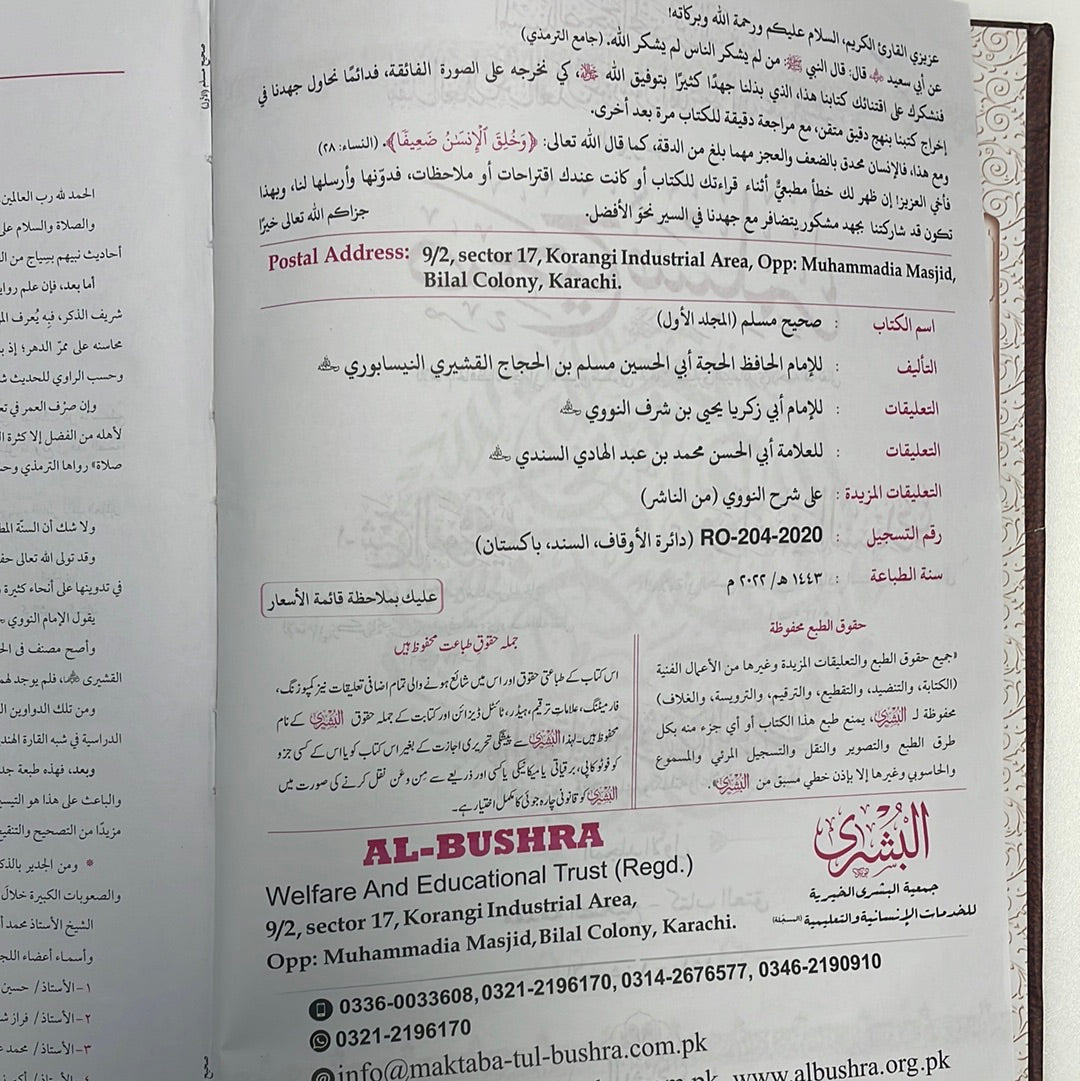 عزيزي القارئ الكريم، السلام عليكم ورحمة الله وبركاته!
عن أبي سعيد ﵁ قال: قال النبي ﷺ: من لم يشكر الناس لم يشكر الله. (جامع الترمذي)
فنشكرك على اقتنائك كتابنا هذا، الذي بذلنا جهدًا كثيرًا بتوفيق الله ﷻ، كي نخرجه على الصورة الفائقة، فدائمًا نحاول جهدنا في
إخراج كتبنا بنهج دقيق متقن، مع مراجعة دقيقة للكتاب مرة بعد أخرى.
ومع هذا، فالإنسان محدق بالضعف والعجز مهما بلغ من الدقة، كما قال الله تعالى: ﴿وَخُلِقَ ٱلْإِنسَٰنُ ضَعِيفًا﴾. (النساء: ٢٨)
فأخي العزيز! إن ظهر لك خطأ مطبعيٌّ أثناء قراءتك للكتاب أو كانت عندك اقتراحات أو ملاحظات، فدوّنها وأرسلها لنا، وبهذا
تكون قد شاركتنا بجهد مشكور يتضافر مع جهدنا في السير نحوَ الأفضل. جزاكم الله تعالى خيرًا
Postal Address: 9/2, sector 17, Korangi Industrial Area, Opp: Muhammadia Masjid,
Bilal Colony, Karachi.
اسم الكتاب : صحيح مسلم (المجلد الأول)
التأليف : للإمام الحافظ الحجة أبي الحسين مسلم بن الحجاج القشيري النيسابوري ﵀
التعليقات : للإمام أبي زكريا يحيي بن شرف النووي ﵀
التعليقات : للعلامة أبي الحسن محمد بن عبد الهادي السندي ﵀
التعليقات المزيدة : على شرح النووي (من الناشر)
رقم التسجيل : RO-204-2020 (دائرة الأوقاف، السند، باكستان)
سنة الطباعة : ١٤٤٣ هـ/ ٢٠٢٢ م
عليك بملاحظة قائمة الأسعار
حقوق الطبع محفوظة
«جميع حقوق الطبع والتعليقات المزيدة وغيرها من الأعمال الفنية
(الكتابة، والتنضيد، والتقطيع، والترقيم، والترويسة، والغلاف)
محفوظة لـ البُشرى، يمنع طبع هذا الكتاب أو أي جزء منه بكل
طرق الطبع والتصوير والنقل والتسجيل المرئي والمسموع
والحاسوبي وغيرها إلا بإذن خطي مسبق من البُشرى».
جملہ حقوقِ طباعت محفوظ ہیں
اس کتاب کے طباعتی حقوق اور اس میں شائع ہونے والی تمام اضافی تعلیقات نیز کمپوزنگ،
فارمیٹنگ، علاماتِ ترقیم، ہیڈر، ٹائٹل ڈیزائن اور کتابت کے جملہ حقوق البُشرى کے نام
محفوظ ہیں۔ لہٰذا البُشرى سے پیشگی تحریری اجازت کے بغیر اس کتاب کو یا اس کے کسی جزو
کو فوٹو کاپی، برقیاتی یا میکانیکی یا کسی اور ذریعے سے مِن وعَن نقل کرنے کی صورت میں
البُشرى کو قانونی چارہ جوئی کا مکمل اختیار ہے۔
AL-BUSHRA
Welfare And Educational Trust (Regd.)
9/2, sector 17, Korangi Industrial Area,
Opp: Muhammadia Masjid, Bilal Colony, Karachi.
البُشرى
جمعية البشرى الخيرية
للخدمات الإنسانية والتعليمية (المسجّلة)
0336-0033608, 0321-2196170, 0314-2676577, 0346-2190910
0321-2196170
info@maktaba-tul-bushra.com.pk
www.albushra.org.pk
صحيح مسلم (الأول)
الحمد لله رب العالمين
والصلاة والسلام على
أحاديث نبيهم بسِياج من
أما بعد، فإن علم
شريف الذكر، فبِه يُعرف
محاسنه على ممرّ الدهر؛ إذ
وحسب الراوي للحديث
وإن صرْف العمر في
لأهله من الفضل إلا كثرة
صلاة» رواها الترمذي
ولا شك أن السنّة
وقد تولى الله تعالى
في تدوينها على أنحاء كثيرة
يقول الإمام النووي
وأصح مصنف في
القشيري ﵀، فلم يوجد
ومن تلك الدواوين
الدراسية في شبه القارة
وبعد، فهذه طبعة
والباعث على هذا هو
مزيدًا من التصحيح
* ومن الجدير
والصعوبات الكبيرة خلالَ
الشيخ الأستاذ محمد
وأسماء أعضاء
١-الأستاذ/ حسين
٢-الأستاذ/ فراز
٣-الأستاذ/ محمد